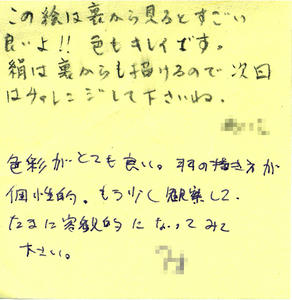 この絵は裏から見るとすごい
良いよ!! 色もキレイです。
絹は裏からも描けるので次回
はチャレンジして下さいね.
色彩がとても良い。羽の描き方が
個性的。もう少し観察して.
たまに客観的になってみて
下さい。